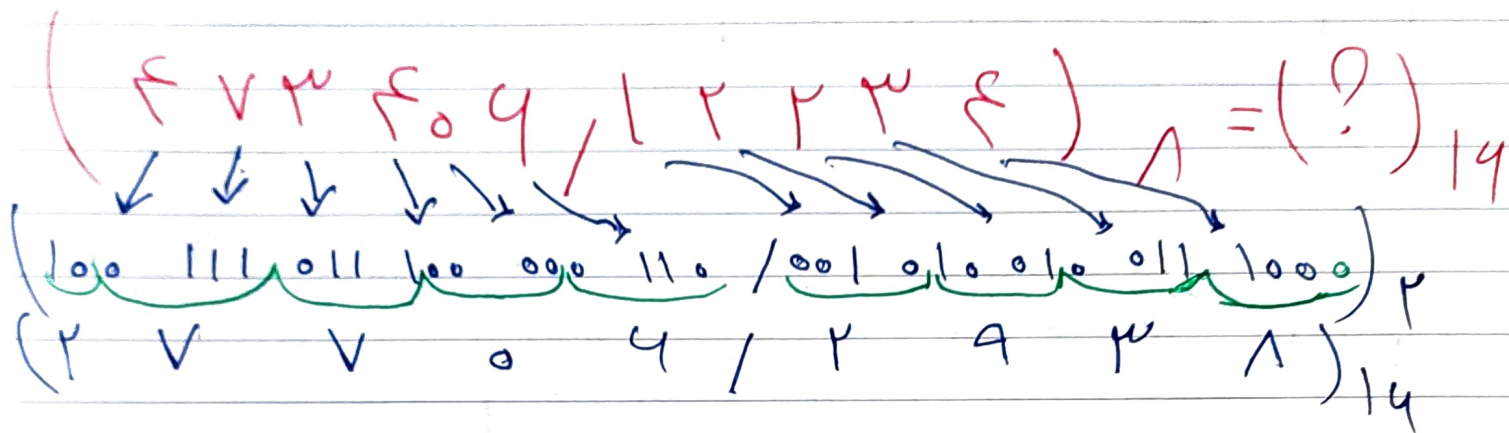 (۴۷۳۴۰۶/۱۲۲۳۴)۸ = (?)۱۶
(100 111 011 100 000 110 / 001 010 010 011 1000)۲
(۲ ۷ ۷ ۰ ۶ / ۲ ۹ ۳ ۸)۱۶